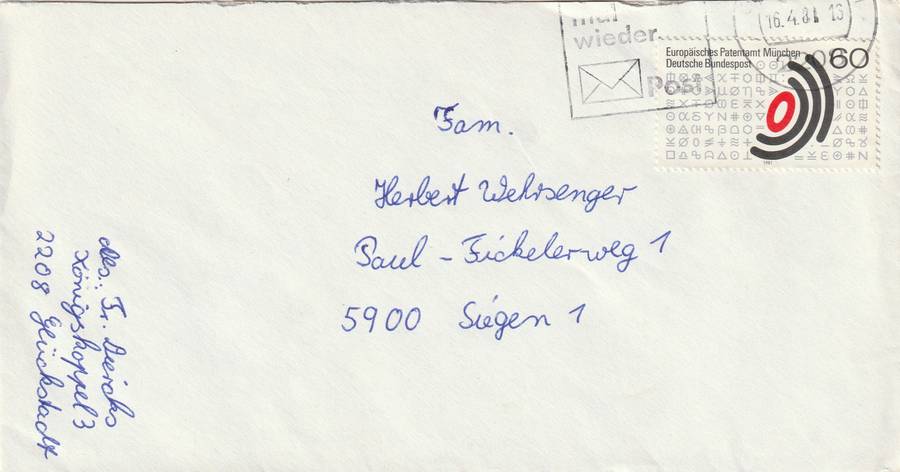 mal
wieder
Post
16.4.81 13
2208
Europäisches Patentamt München
Deutsche Bundespost
60
1981
Fam.
Herbert Wehrsenger
Paul-Fickelerweg 1
5900 Siegen 1
Abs.: Fr. Diercks
Königskoppel 3
2208 Glückstadt